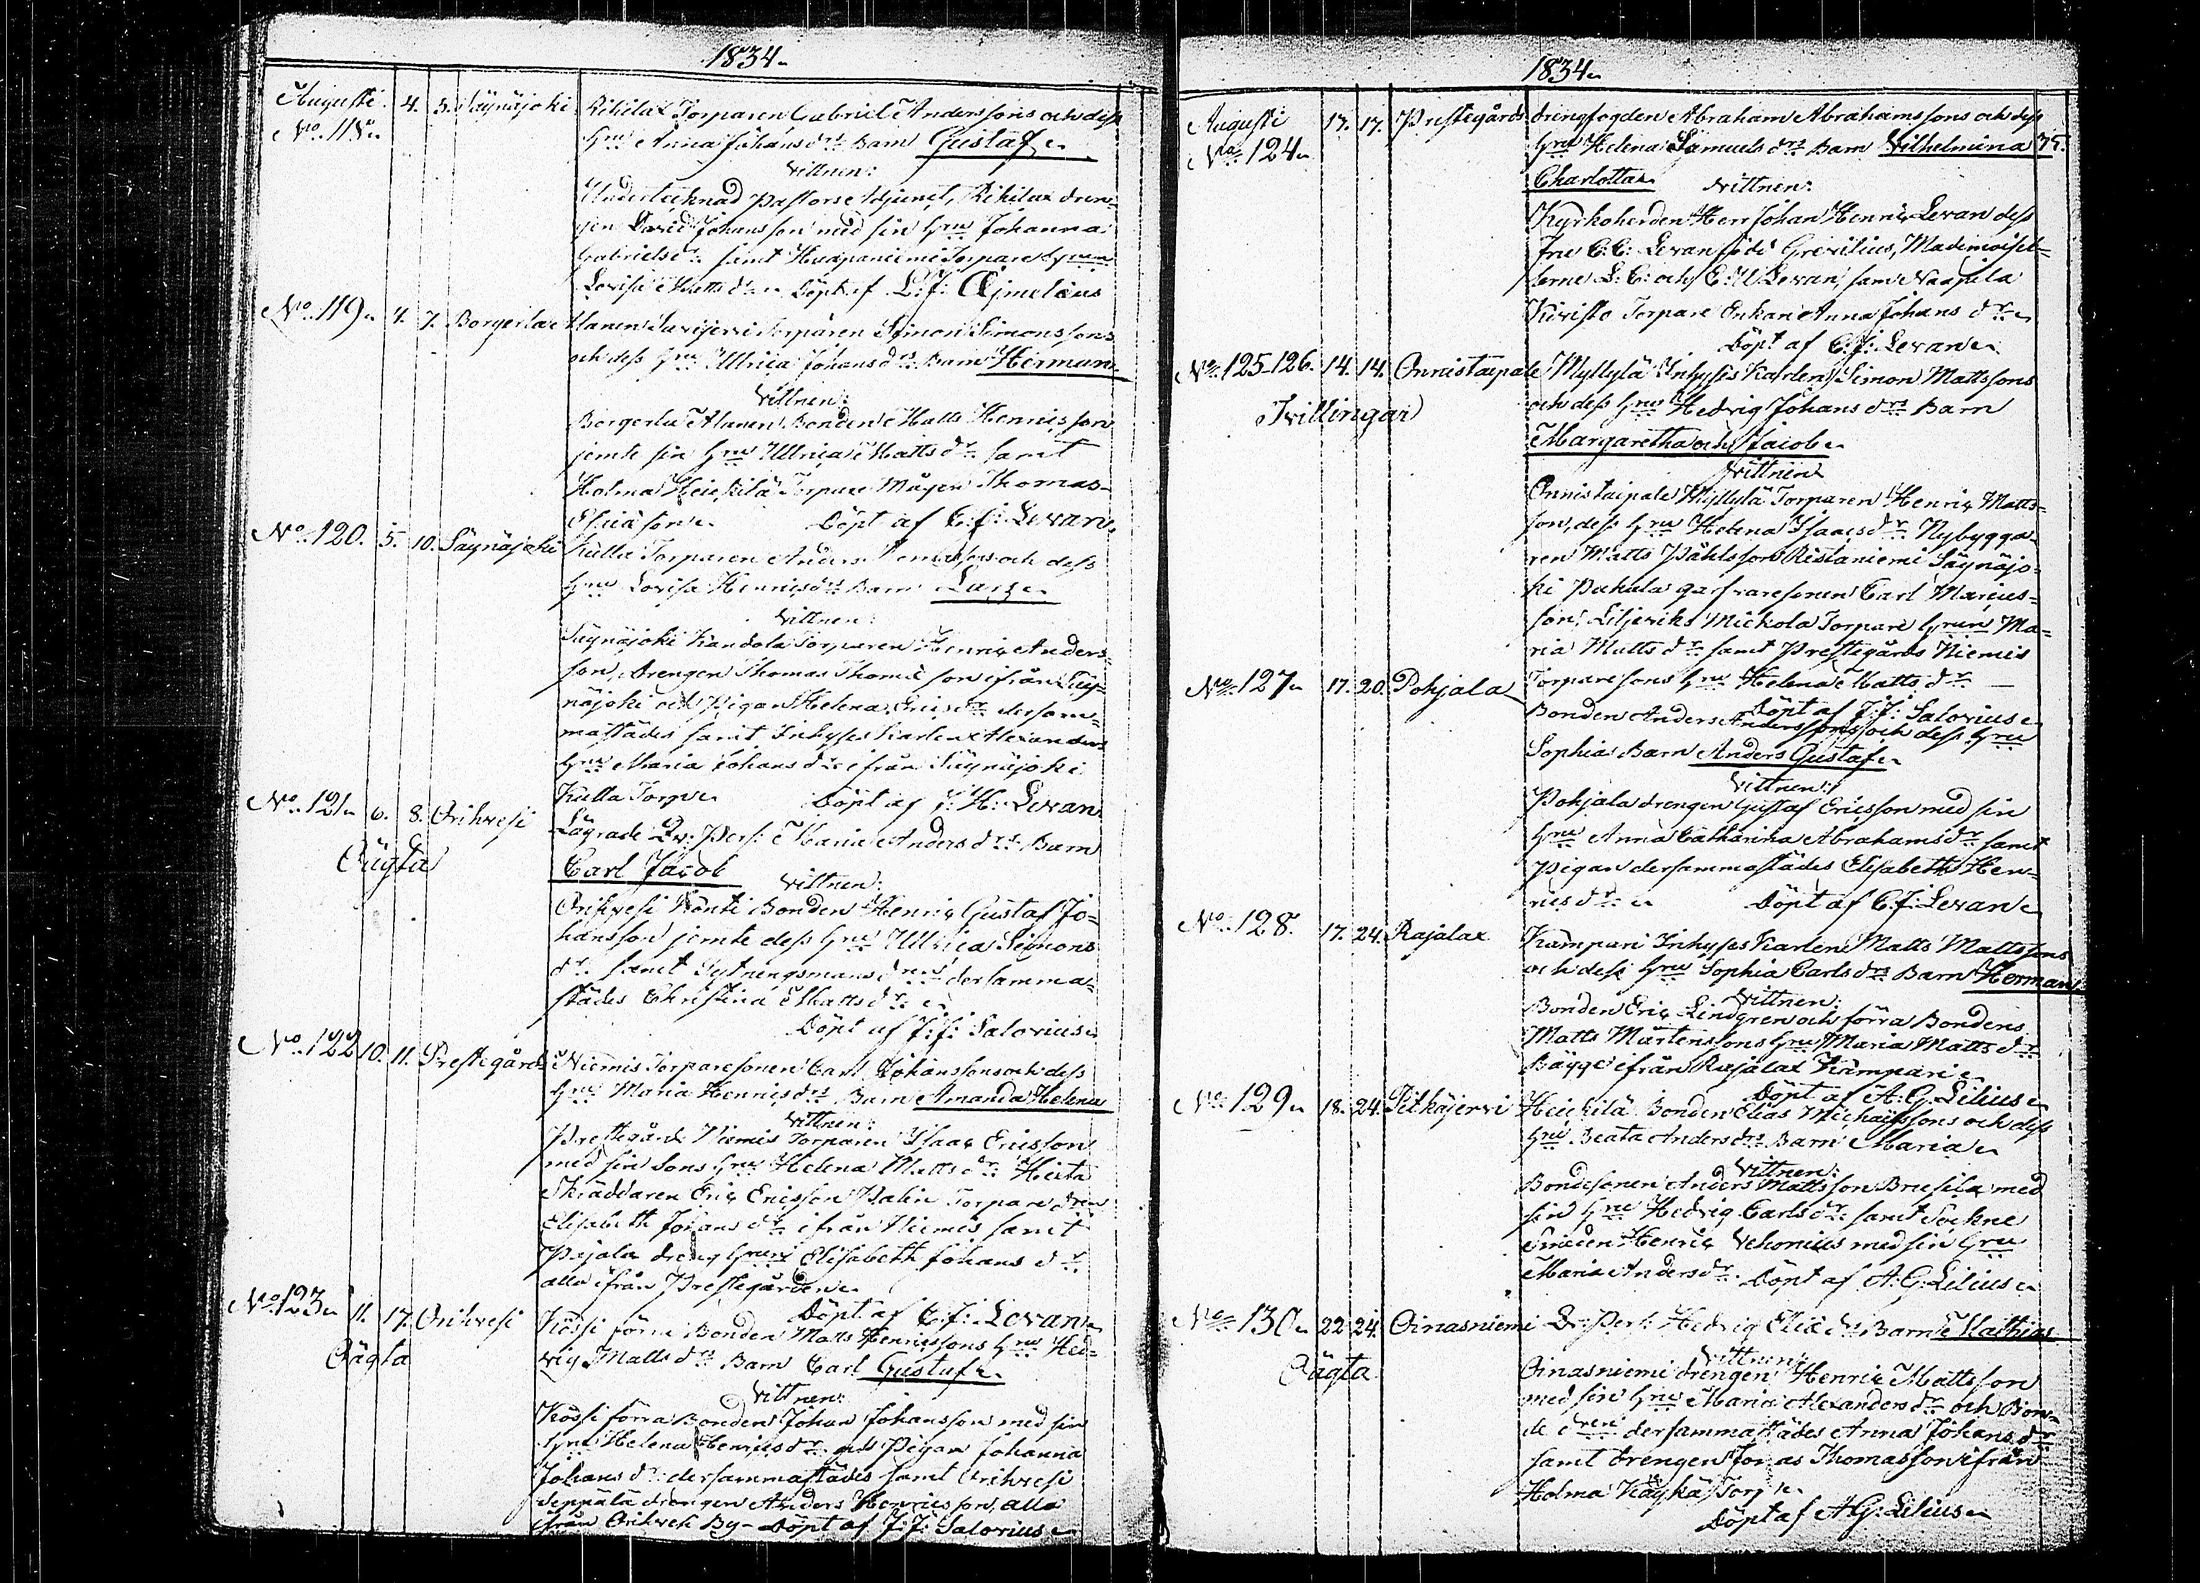 1834
Augusti 4. 5. Säynäjoki Rikilax Torparen Gabriel Anderssons och dess
No. 118. Hru Anna Johansdrs Barn Gustaf
Vittnen:
Undertecknad Pastors Adjunct, Rikilax dren-
gen David Johansson med sin Hru Johanna
Gabrielsdr samt Haapaniemi Torpare Hrun
Lovisa Mattsdr Döpt af L. J. Ajmelæus
No. 119 4. 7. Borgerla Alanen Torparen Simon Simonssons
och dess Hru Ulrica Johansdrs Barn Herman
Vittnen:
Borgerla Alanen Bonden Matts Henricsson
jemte sin Hru Ulrica Mattsdr samt
Holma Heickilä Torpare Mågen Thomas
Eliæson Döpt af C. J. Levan
No. 120. 5. 10. Säynäjoki Kulla Torparen Anders och dess
Hru Lovisa Henricsdrs Barn Lars
Vittnen:
Säynäjoki Kandola Torparen Henric Anders-
son, Drengen Thomas Thomæson ifrån Säy-
näjoki och Pigan Helena Ericsdr dersam-
mastädes samt Inhyses Karlen Alexanders
Hru Maria Johansdr ifrån Säynäjoki
Kulla Torp Döpt af J. H. Levan
No. 121 6. 8. Orihvesi Lägrade Qv: Pers: Maria Andersdrs Barn
Oägta Carl Jacob
Vittnen:
Orihvesi Könti Bonden Henric Gustaf Jo-
hansson jemte dess Hru Ulrica Simons
dr samt dersamma-
städes Christina Mattsdr
Döpt af J. J. Salovius
No. 122 10. 11. Prestegårds Niemis Torparesonen Carl Johanssons och dess
Hru Maria Henricsdrs Barn Amanda Helena
Vittnen:
Prestegårds Niemis Torparen Isaac Ericsson
med sin Sons Hru Helena Mattsdr
Skräddaren Eric Ericsson Torpare dren
Elisabeth Johansdr ifrån Niemis samt
Pajala dreng Hrun Elisabeth Johansdr
alla ifrån Prestegården
Döpt af C. J. Levan
No. 123 11. 17. Orihvesi Kössi förra Bonden Matts Henricssons Hru Hed-
Oägta vig Mattsdrs Barn Carl Gustaf
Vittnen:
Kössi förra Bonden Johan Johansson med sin
Hru Helena Henricsdr och Pigan Johanna
Johansdr dersammastädes samt Orihvesi
Seppälä drengen Anders Henricsson, alla
ifrån Orihvesi By - Döpt af J. J. Salovius
1834
Augusti 17. 17. Prestegårds drengfogden Abraham Abrahamssons och dess
No. 124 Hru Helena Samuelsdrs Barn Vilhelmina
Charlotta Vittnen:
Kyrkoherden Herr Johan Henric Levan dess
Fru C. C. Levan född Grevilius, Mademoisel-
lerne L. C. och E. W. Levan, samt Naapila
Kivistö Torpare Enkan Anna Johansdr
Döpt af C. J. Levan
No. 125-126. 14. 14. Onnistaipale Myllylä Inhyses Karlen Simon Mattssons
Tvillingar och dess Hru Hedvig Johansdrs Barn
Margaretha och Jacob
Vittnen
Onnistaipale Myllylä Torparen Henric Matts-
son, dess Hru Helena Isaacsdr Nybygga-
ren Matts Påhlsson Ristaniemi Säynäjo-
ki Pukala garfvaresonen Carl Marcus-
son, Liljeriks Mickola Torpare Hrun Ma-
ria Mattsdr samt Prestegårds Niemis
Torparesons Hru Helena Mattsdr
Döpt af J. J. Salovius
No. 127 17. 20. Pohjala Bonden Anders Anderssons och dess Hru
Sophias Barn Anders Gustaf
Vittnen:
Pohjala drengen Gustaf Ericsson med sin
Hru Anna Catharina Abrahamsdr samt
Pigan dersammastädes Elisabeth Hen-
ricsdr Döpt af C. J. Levan
No. 128. 17. 24. Rajalax Kämpäri Inhyses Karlen Matts Mattssons
och dess Hru Sophia Carlsdrs Barn Herman
Vittnen:
Bonden Eric Lindgren och förra Bondens
Matts Mårtenssons Hru Maria Mattsdr
Bägge ifrån Rajalax Kämpäri
Döpt af A. G. Lilius
No. 129 18. 24. Pitkäjervi Heickilä Bonden Elias Michaelssons och dess
Hru Beata Andersdrs Barn Maria
Vittnen:
Bondesonen Anders Mattsson Brusila med
sin Hru Hedvig Carlsdr samt Sockne
Smeden Henric Vehonius med sin Hru
Maria Andersdr Döpt af A. G. Lilius
No. 130 22. 24. Oinasniemi Qv: Pers: Hedvig Eliædrs Barn Mathias
Oägta Vittnen:
Oinasniemi drengen Henric Mattsson
med sin Hru Maria Alexandersdr och Bon-
de dren dersammastädes Anna Johansdr
samt drengen Thomasson ifrån
Holma Käykä Torp
Döpt af A. G. Lilius